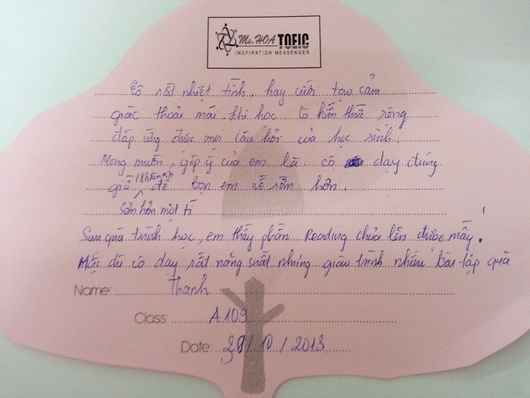 Ms. HOA TOEIC
INSPIRATION MESSENGER
Cô rất nhiệt tình, hay cười tạo cảm
giác thoải mái khi học. Có kiến thức rộng
đáp ứng được mọi câu hỏi của học sinh.
Mong muốn, góp ý của em là cô dạy đúng
giờ để bọn em về sớm hơn.
Sớm hơn một tí
Sau quá trình học, em thấy phần Reading chưa lên được mấy.
Mặc dù cô dạy rất năng suất nhưng giáo trình nhiều bài tập quá
Name: Thanh
Class: A109
Date: /10/2013